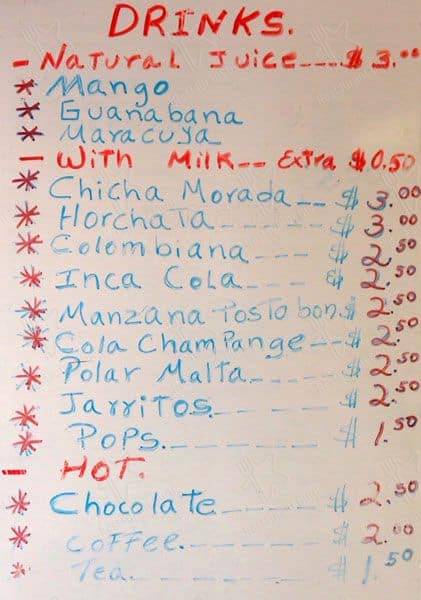 DRINKS.
- Natural Juice___$ 3.00
* Mango
* Guanabana
* Maracuya
- With Milk__ Extra $0.50
* Chicha Morada__ $ 3.00
* Horchata_____ $ 3.00
* Colombiana___ $ 2.50
* Inca Cola___ $ 2.50
* Manzana Postobon.$ 2.50
* Cola ChamPange__$ 2.50
* Polar Malta.___ $ 2.50
* Jarritos_____ $ 2.50
* Pops._______ $ 1.50
- HOT.
* Chocolate_____ $ 2.50
* coffee._____ $ 2.00
* Tea._______ $ 1.50